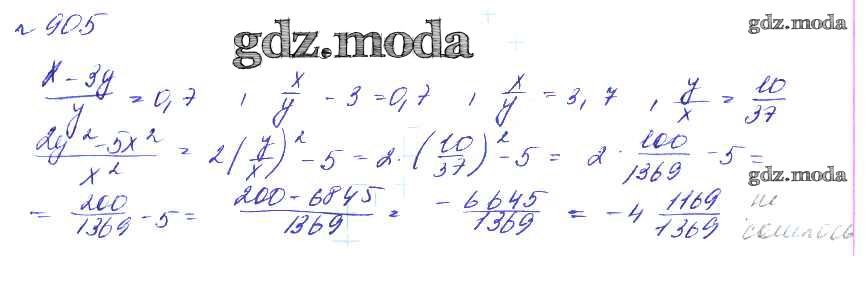 № 905
gdz.moda
gdz.moda
(x - 3y)/y = 0,7 , x/y - 3 = 0,7 , x/y = 3,7 , y/x = 10/37
(2y² - 5x²)/x² = 2(y/x)² - 5 = 2·(10/37)² - 5 = 2 · 100/1369 - 5 =
gdz.moda
= 200/1369 - 5 = (200 - 6845)/1369 = - 6645/1369 = -4 1169/1369 не
сошлось